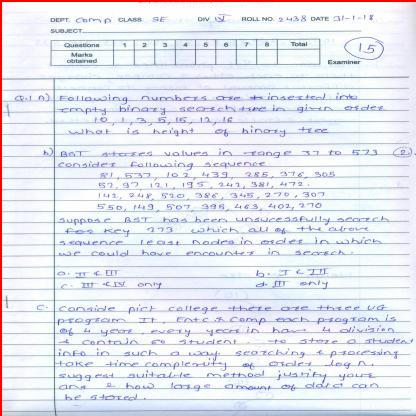 DEPT. Comp CLASS SE DIV IV ROLL NO. 2438 DATE 31-1-18
SUBJECT
Questions 1 2 3 4 5 6 7 8 Total
Marks obtained
15
Examiner
Q.1 A) Following numbers are inserted into
empty binary search tree in given order
10, 1, 3, 5, 15, 12, 16
what is height of binary tree
b) BST stores values in range 37 to 573 (2)
consider following sequence.
81, 537, 102, 439, 285, 376, 305
52, 97, 121, 195, 242, 381, 472.
142, 248, 520, 386, 345, 270, 307
550, 149, 507, 395, 463, 402, 270
suppose BST has been unsucessfully search
for key 273 which all of the above
sequence least nodes in order in which
we could have encounter in search.
a. II & III b. I & III
c. III & IV only d. III only
C. Conside pict college there are three UG
program IT, Entc & Comp each program is
of 4 year. every year in have 4 division
& contain 60 student. to store a student
info in such a way searching & processing
take time complexity of order log n.
suggest suitable method justify your
ans & how large amount of data can
be stored.